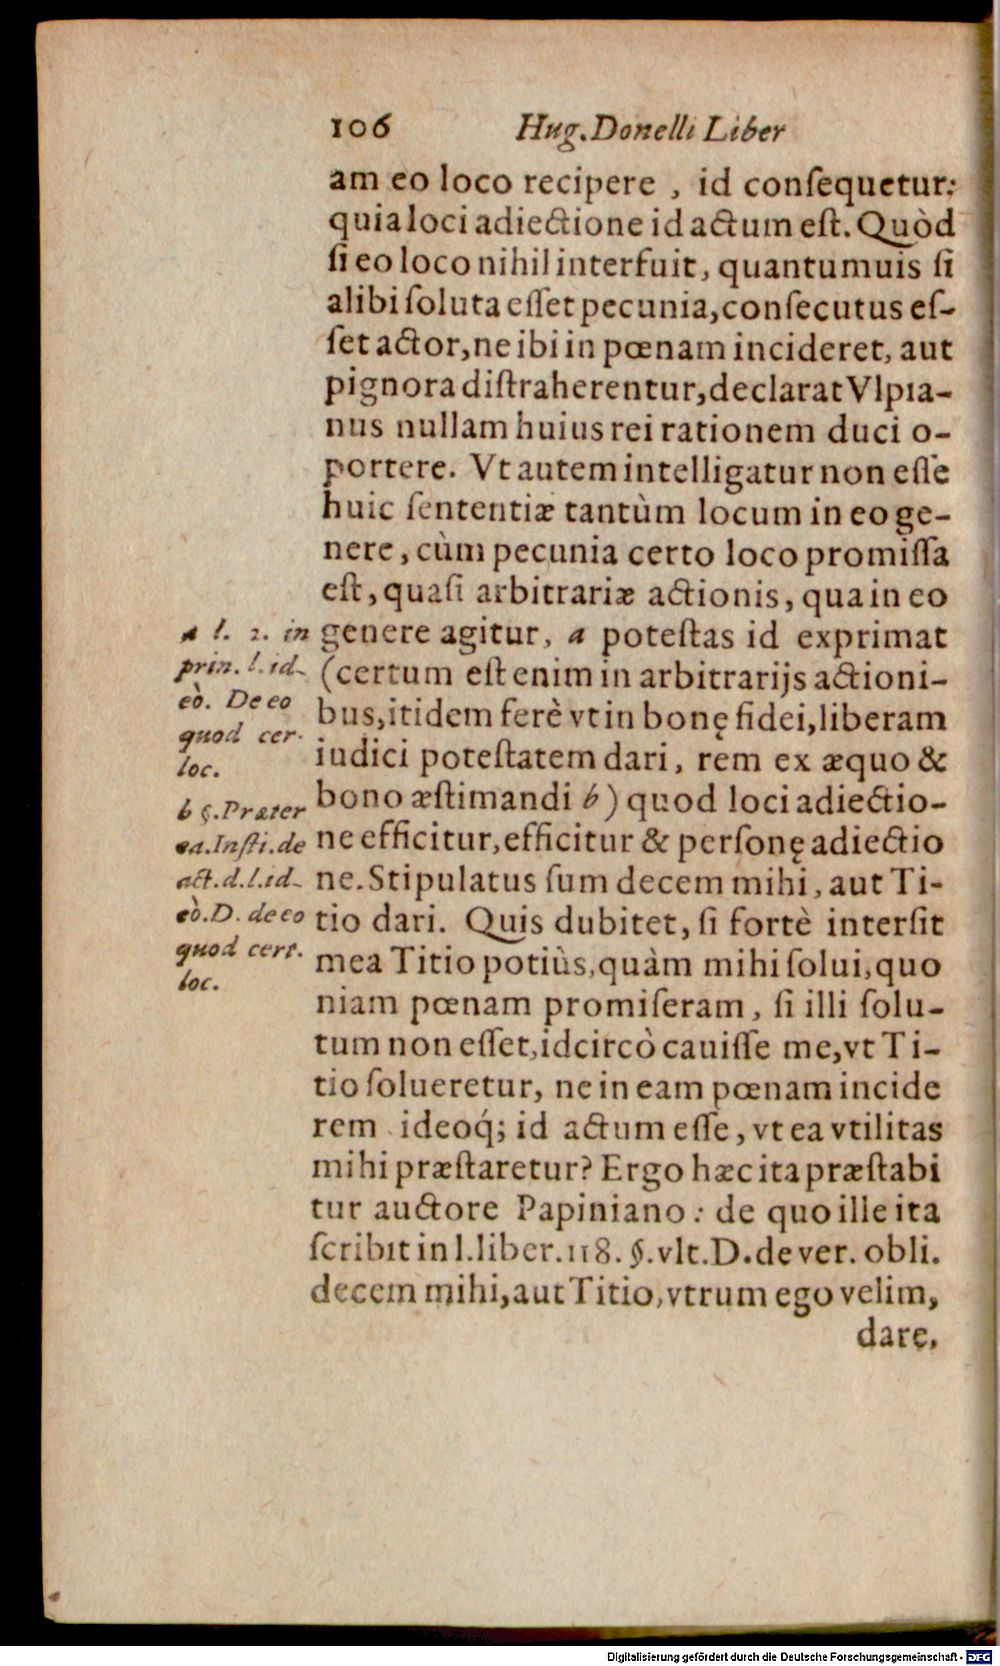 106 Hug. Donelli Liber
am eo loco recipere , id conſequetur:
quia loci adiectione id actum eſt. Quòd
ſi eo loco nihil interfuit, quantumuis ſi
alibi ſoluta eſſet pecunia, conſecutus eſ-
ſet actor, ne ibi in pœnam incideret, aut
pignora diſtraherentur, declarat Vlpia-
nus nullam huius rei rationem duci o-
portere. Vt autem intelligatur non eſſe
huic ſententiæ tantùm locum in eo ge-
nere, cùm pecunia certo loco promiſſa
eſt, quaſi arbitrariæ actionis, qua in eo
genere agitur, a poteſtas id exprimat
(certum eſt enim in arbitrarijs actioni-
bus, itidem ferè vt in bonę fidei, liberam
iudici poteſtatem dari, rem ex æquo &
bono æſtimandi b) quod loci adiectio-
ne efficitur, efficitur & perſonę adiectio
ne. Stipulatus ſum decem mihi, aut Ti-
tio dari. Quis dubitet, ſi fortè interſit
mea Titio potiùs, quàm mihi ſolui, quo
niam pœnam promiſeram, ſi illi ſolu-
tum non eſſet, idcircò cauiſſe me, vt Ti-
tio ſolueretur, ne in eam pœnam incide
rem ideoq́; id actum eſſe, vt ea vtilitas
mihi præſtaretur? Ergo hæc ita præſtabi
tur auctore Papiniano: de quo ille ita
ſcribit in l. liber. 118. §. vlt. D. de ver. obli.
decem mihi, aut Titio, vtrum ego velim,
dare,
a l. 2. in
prin. l. id-
eò. De eo
quod cer.
loc.
b §. Præter
ea. Inſti. de
act. d. l. id-
eò. D. de eo
quod cert.
loc.
Digitalisierung gefördert durch die Deutsche Forschungsgemeinschaft - DFG